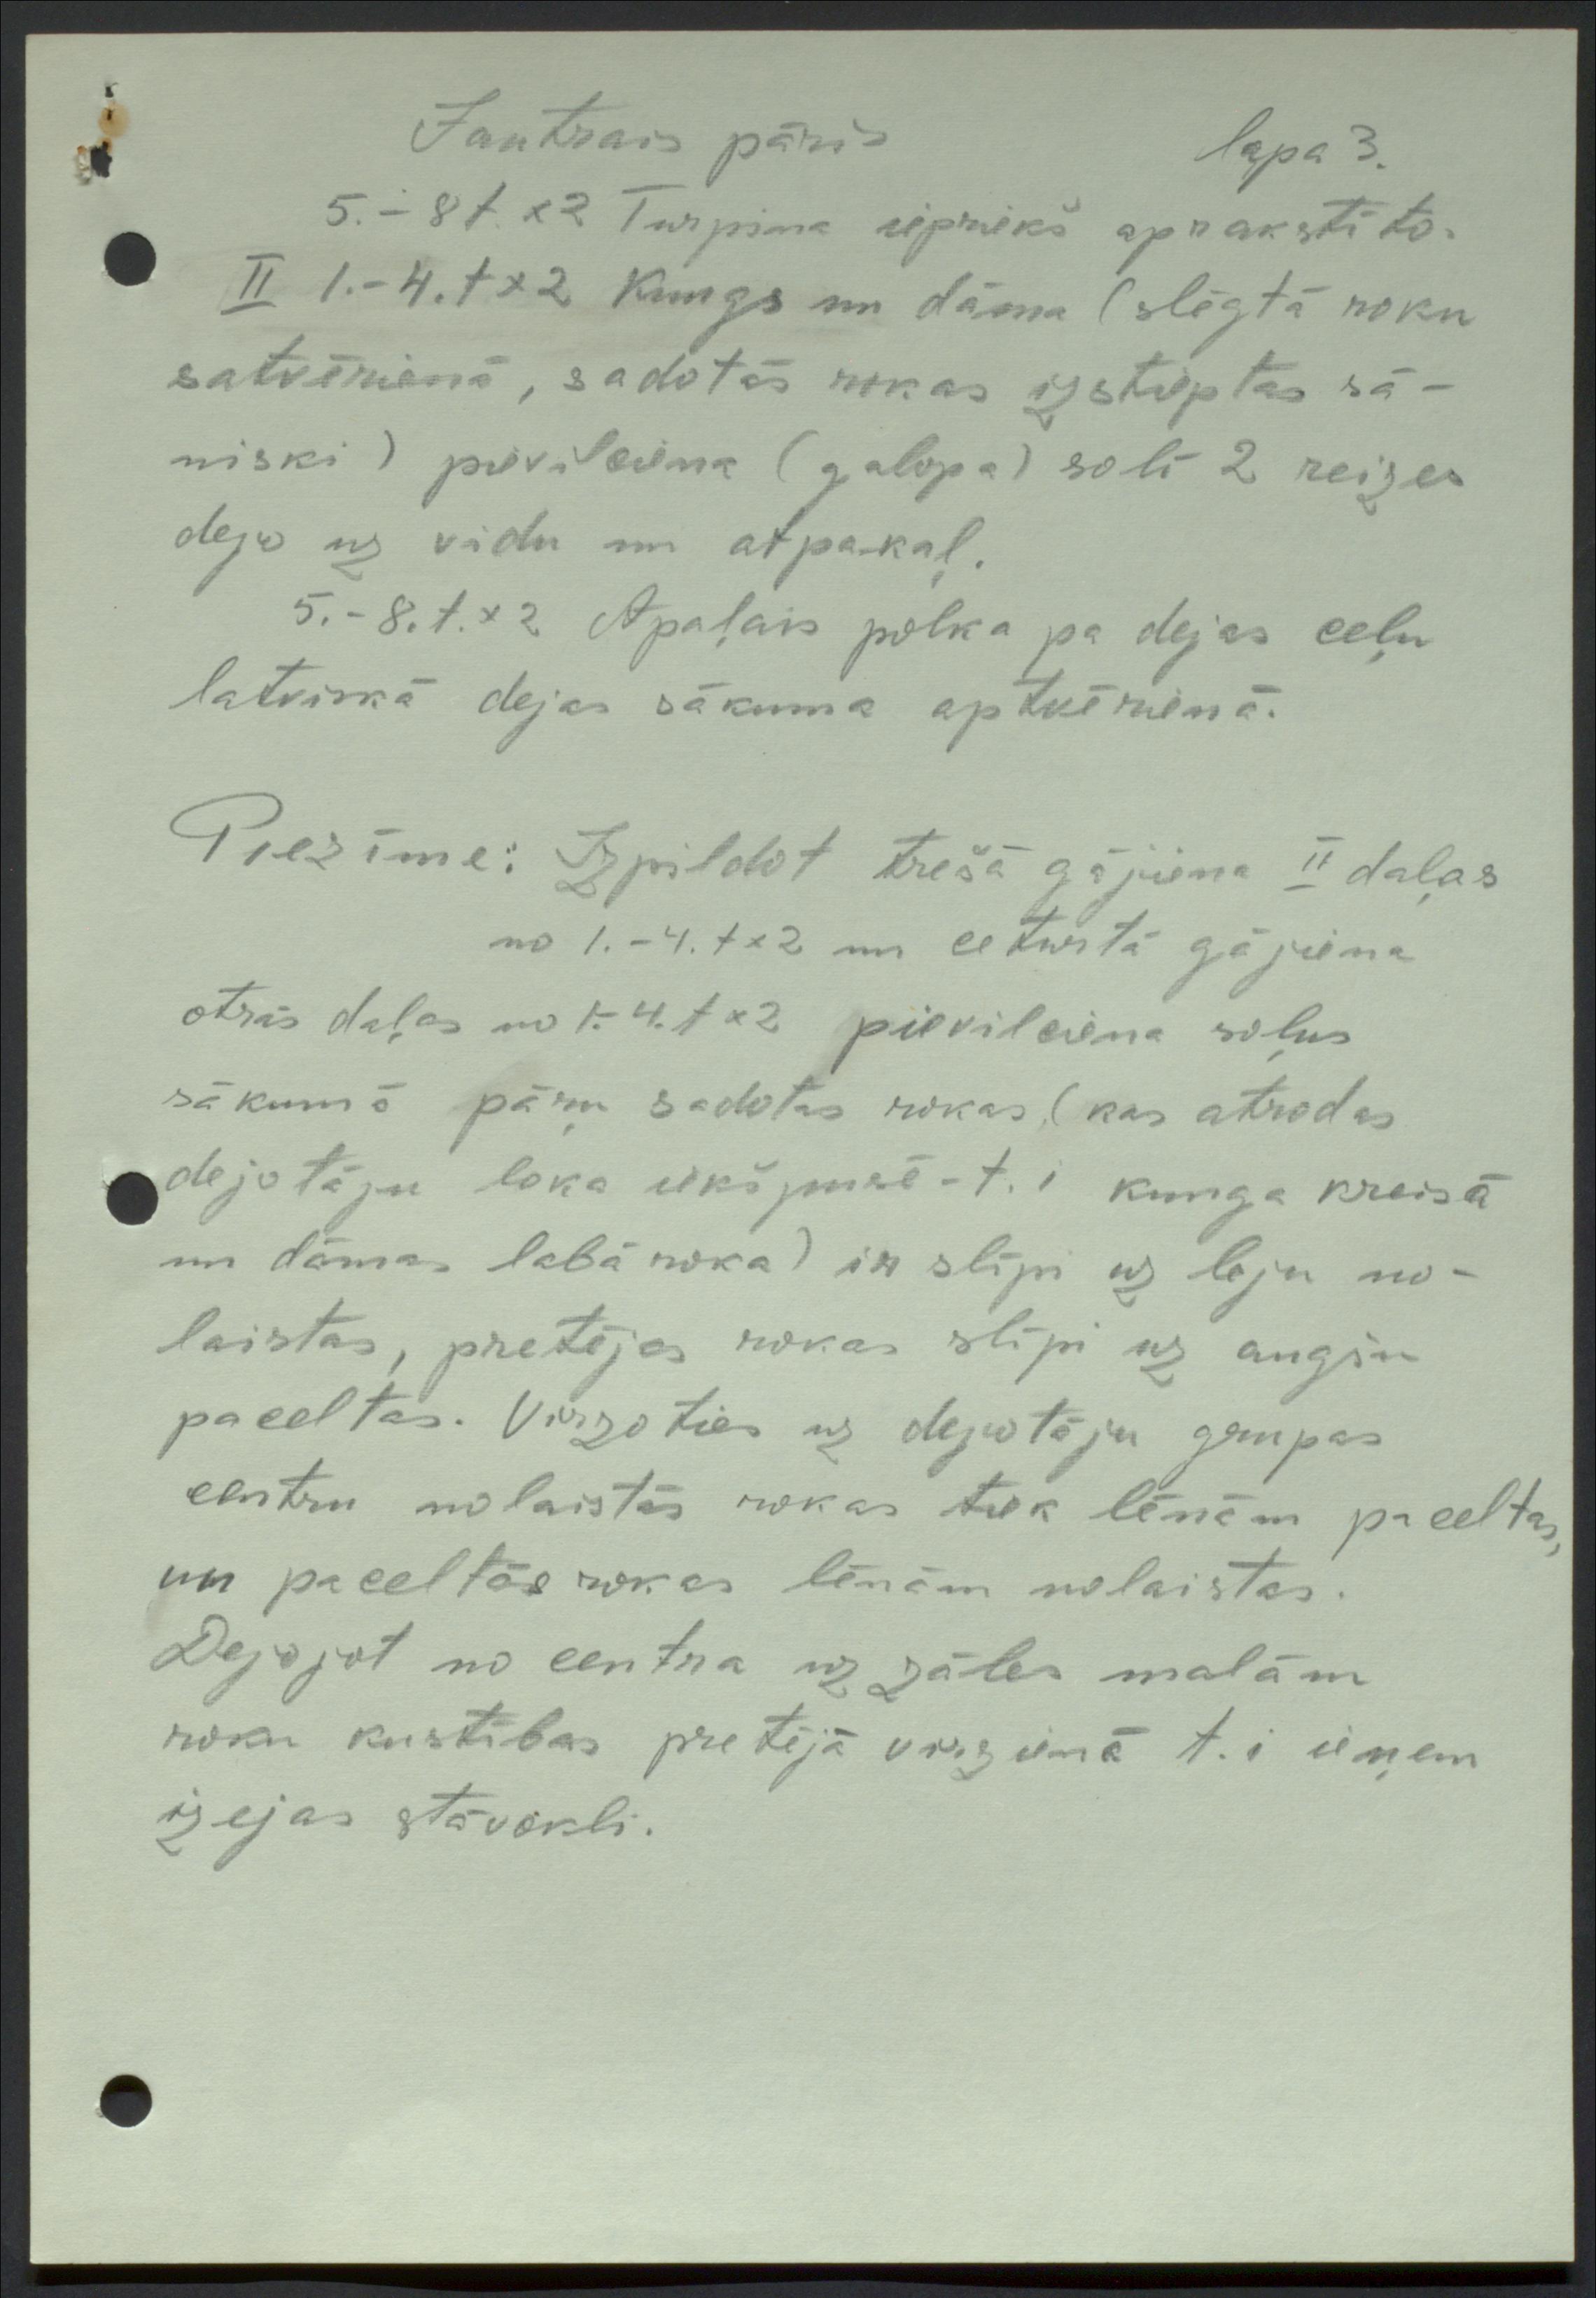 Jautrais pāris lapa 3.
5.-8 t. x2 Turpina iepriekš aprakstīto.
II 1.-4. t x2 Kungs un dāma (slēgtā roku
satvērienā, sadotās rokas izstieptas sā-
niski) pievilciena (galopa) solī 2 reizes
dejo uz vidu un atpakaļ.
5.-8. t. x2 Apaļais polka pa dejas ceļu
latviskā dejas sākuma aptvērienā.
Piezīme: Izpildot trešā gājiena II daļas
no 1.-4. t x2 un ceturtā gājiena
otrās daļas no 1.-4. t x2 pievilciena soļus
sākumā pāŗu sadotās rokas, (kas atrodas
dejotāju loka iekšpusē - t. i kunga kreisā
un dāmas labā roka) ir slīpi uz leju no-
laistas, pretējas rokas slīpi uz augšu
paceltas. Virzoties uz dejotāju grupas
centru nolaistās rokas tiek lēnām paceltas,
un paceltās rokas lēnām nolaistas.
Dejojot no centra uz zāles malām
roku kustības pretējā virzienā t. i ieņem
izejas stāvokli.